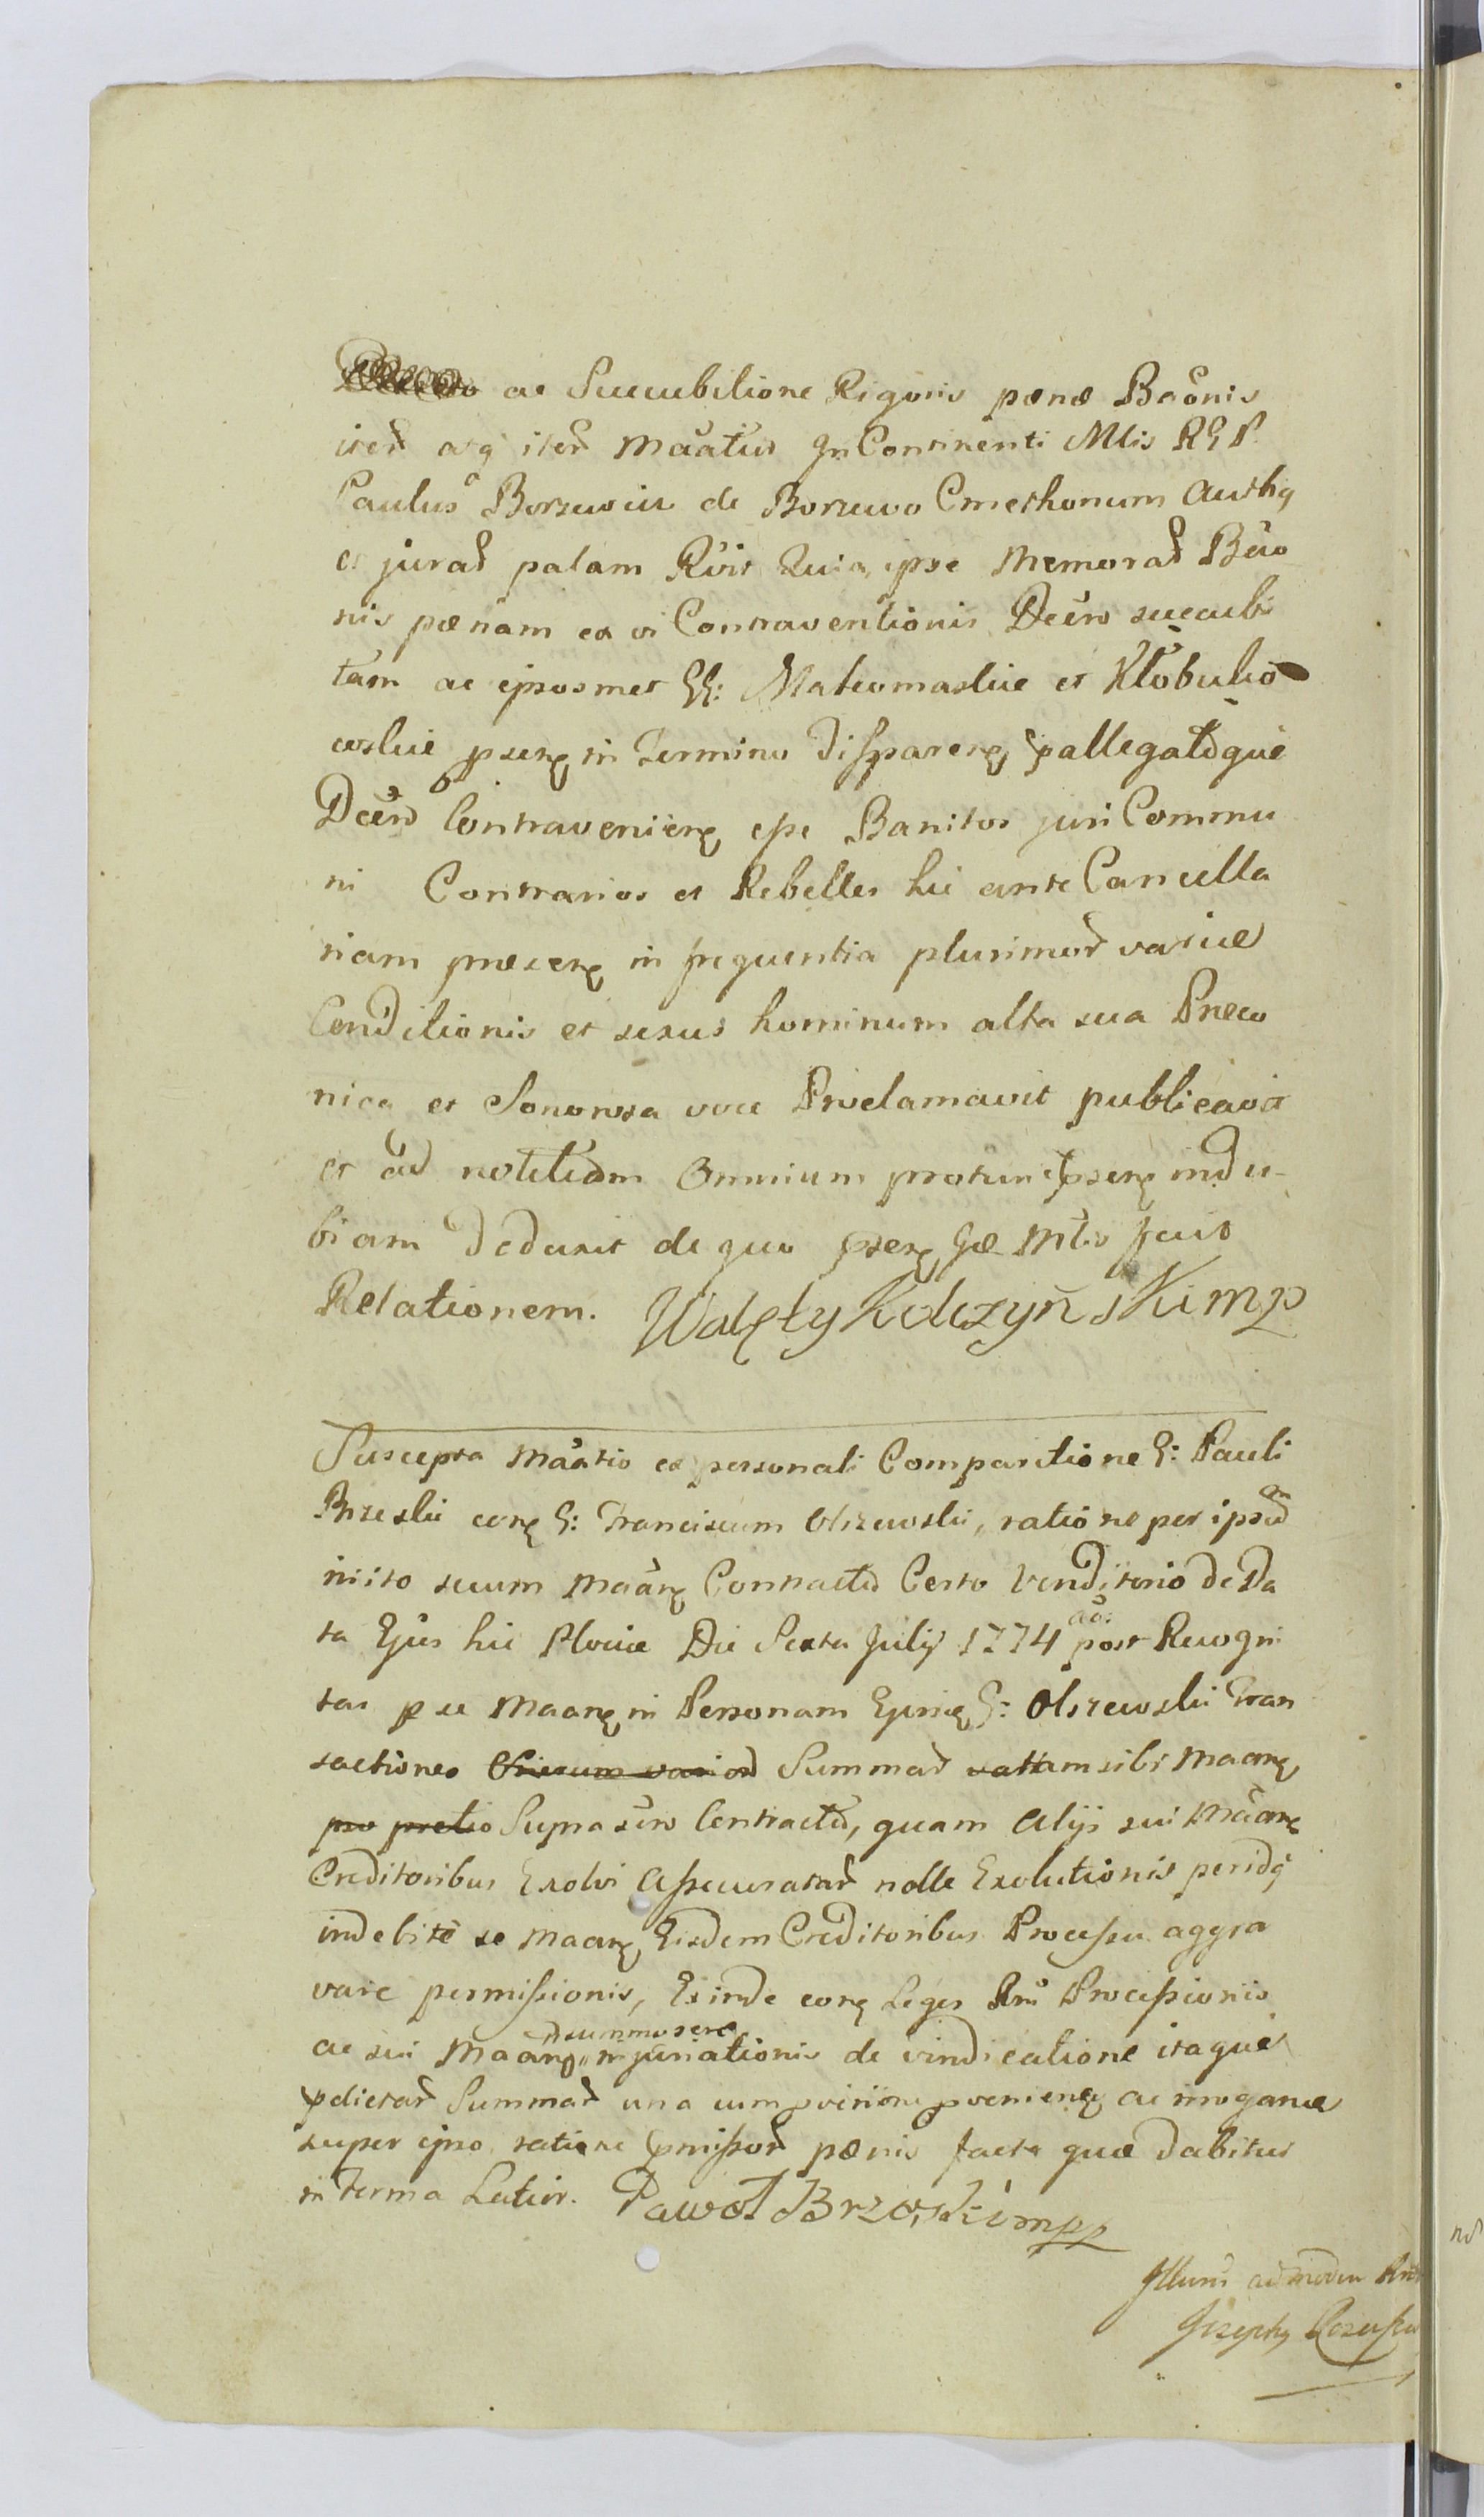 ac Succubitione Rigoris pœnæ Baõnis
iter atq iter Maãtur In Continenti Mlis R G P.
Paulus Borzewicz de Borzewo Cmethonum Authq
et jurat palam Rvit Quia ipse Memorat Bão
nis pœnam ex vi Contraventionis Decro succubi
tam ac ipsosmet GG: Mateomaskie et Kłobuko
wskie psenq in Termino disparenq pallegatoque
Decro Contravenienq esse Banitos juri Commu
ni Contrarios et Rebelles hic ante Cancella
riam præsenq in frequentia plurimor variæ
Conditionis et sexus hominum alta sua Præco
nica et Sonorosa voce Proclamavit publicavit
et ad notitiam Omnium protunc psenq indu-
biam deduxit de quo psenq Gæ Mtis fecit
Relationem. Walęty Kolczyński mp
Suscepta Maãtio ex personali Comparitione G: Pauli
Brzeski conq G: Franciscum Olszewski, ratione per ipsum
inito secum Maãnq Contractu Certo Venditorio de Da
ta Ejus hic Plociæ Die Sexta July 1774 aõs post Recogni
tas p se Maanq in Personam Ejusq G: Olszewski Tran
sactiones Summar vattam sibi Maanq
pro pretio Supra sēro Contractu, quam Alijs sui Maanq
Creditoribus Exolvi Assecuratar nolle Exolutionis peridq
indebite se Maanq Eisdem Creditoribus Processu aggra
vare permissionis, Exinde conq Leges Rni Processionis
ac sui Maanq injuriationis de vindicatione itaque
pdictar Summar una cum provenienq ac irrogane
super ipso ratione pmissor pœnis facta quæ dabitur
in Termo Latior. Paweł Brzeski mpp